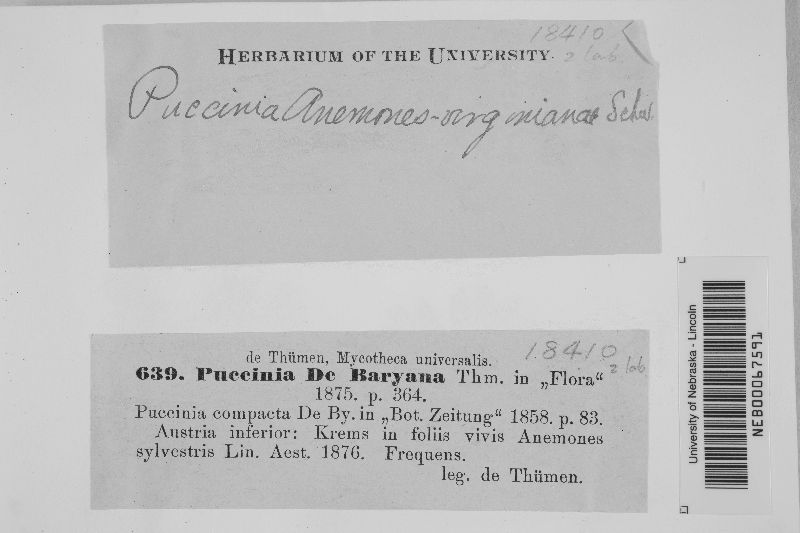 18410
2 lab
HERBARIUM OF THE UNIVERSITY.
Puccinia Anemones-virginianae Schw.
de Thümen, Mycotheca universalis.
18410
2 lab.
639. Puccinia De Baryana Thm. in „Flora“
1875. p. 364.
Puccinia compacta De By. in „Bot. Zeitung“ 1858. p. 83.
Austria inferior: Krems in foliis vivis Anemones
sylvestris Lin. Aest. 1876. Frequens.
leg. de Thümen.
University of Nebraska - Lincoln
NEB00067591